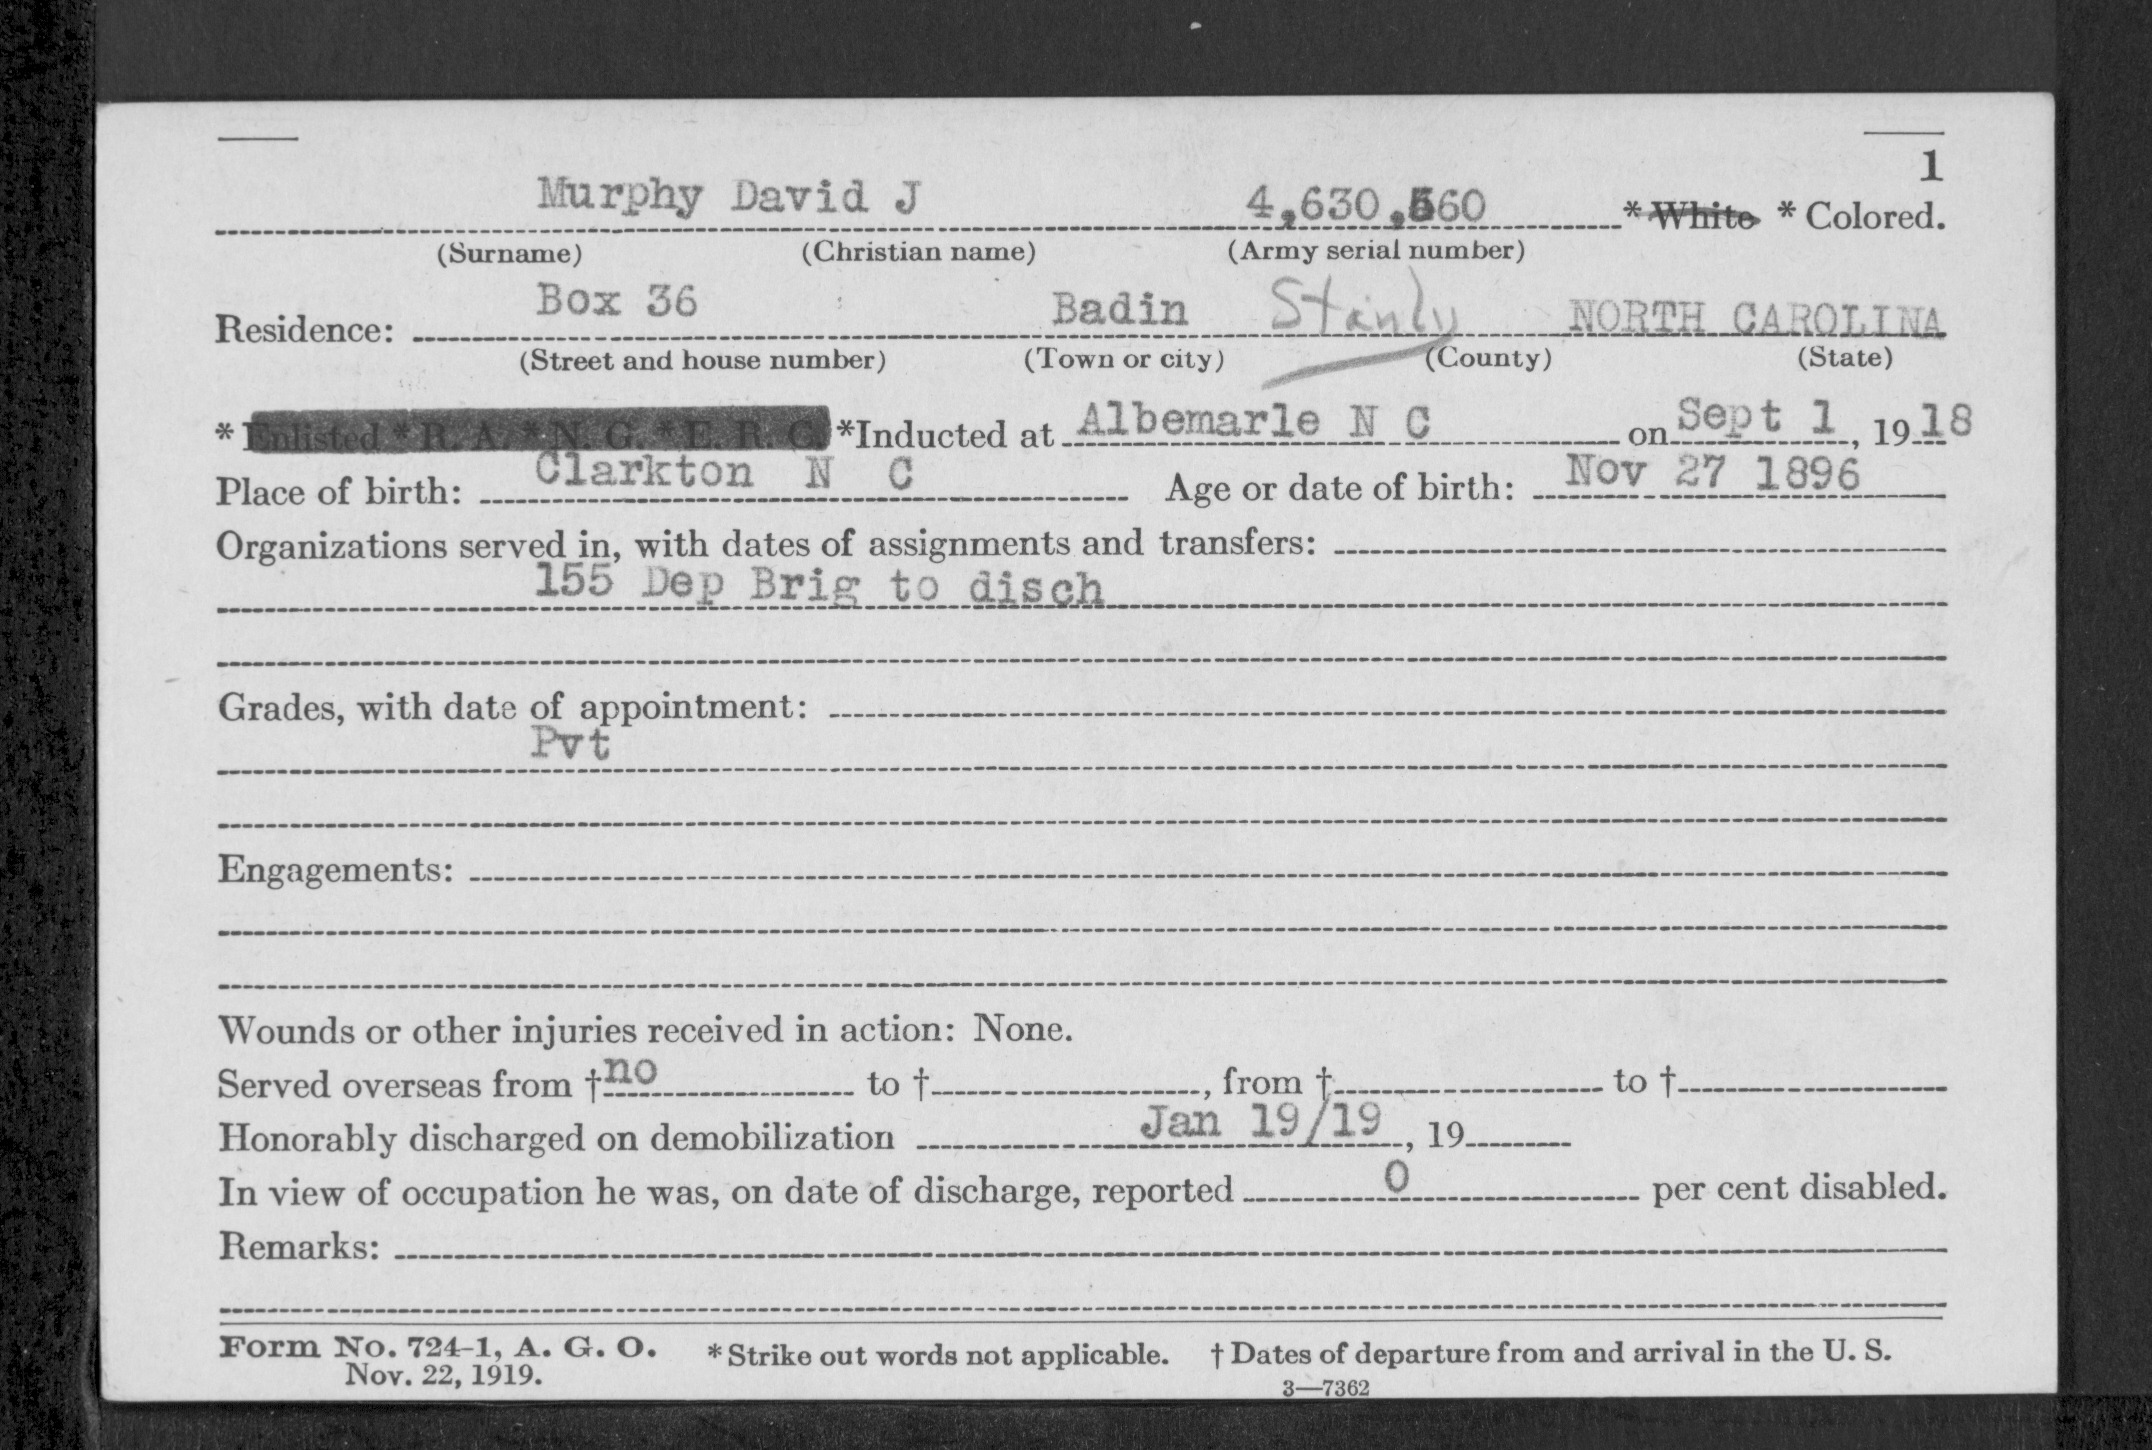 1
Murphy David J 4,630,560 * White * Colored.
(Surname) (Christian name) (Army serial number)
Residence: Box 36 Badin Stanly NORTH CAROLINA
(Street and house number) (Town or city) (County) (State)
* Enlisted * R. A. * N. G. * E. R. C. *Inducted at Albemarle N C on Sept 1, 1918
Place of birth: Clarkton N C Age or date of birth: Nov 27 1896
Organizations served in, with dates of assignments and transfers:
155 Dep Brig to disch
Grades, with date of appointment:
Pvt
Engagements:
Wounds or other injuries received in action: None.
Served overseas from † no to †, from † to †
Honorably discharged on demobilization Jan 19/19, 19
In view of occupation he was, on date of discharge, reported 0 per cent disabled.
Remarks:
Form No. 724-1, A. G. O. * Strike out words not applicable. † Dates of departure from and arrival in the U. S.
Nov. 22, 1919. 3—7362